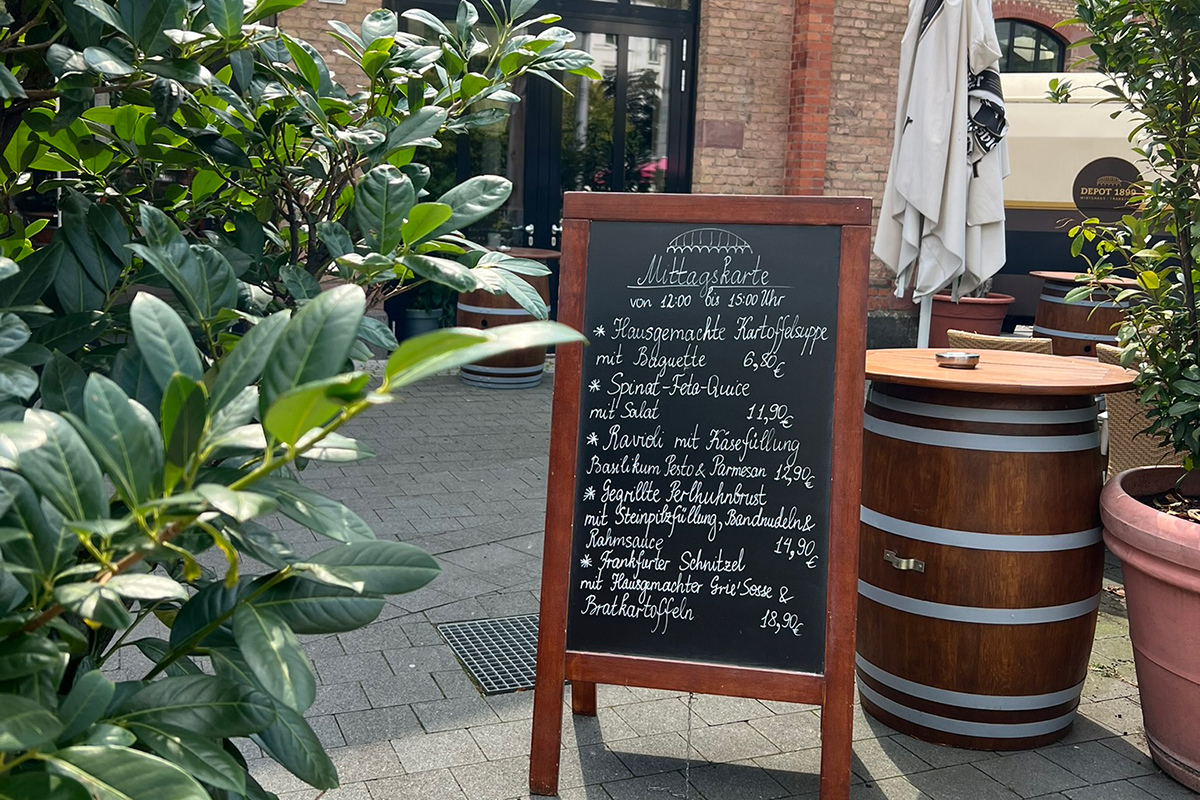 Mittagskarte
von 12:00 bis 15:00 Uhr
* Hausgemachte Kartoffelsuppe
mit Baguette 6,80€
* Spinat-Feta-Quice
mit Salat 11,90€
* Ravioli mit Käsefüllung
Basilikum Pesto & Parmesan 12,90€
* Gegrillte Perlhuhnbrust
mit Steinpilzfüllung, Bandnudeln &
Rahmsauce 14,90€
* Frankfurter Schnitzel
mit Hausgemachter Grie' Sosse &
Bratkartoffeln 18,90€
DEPOT 1899